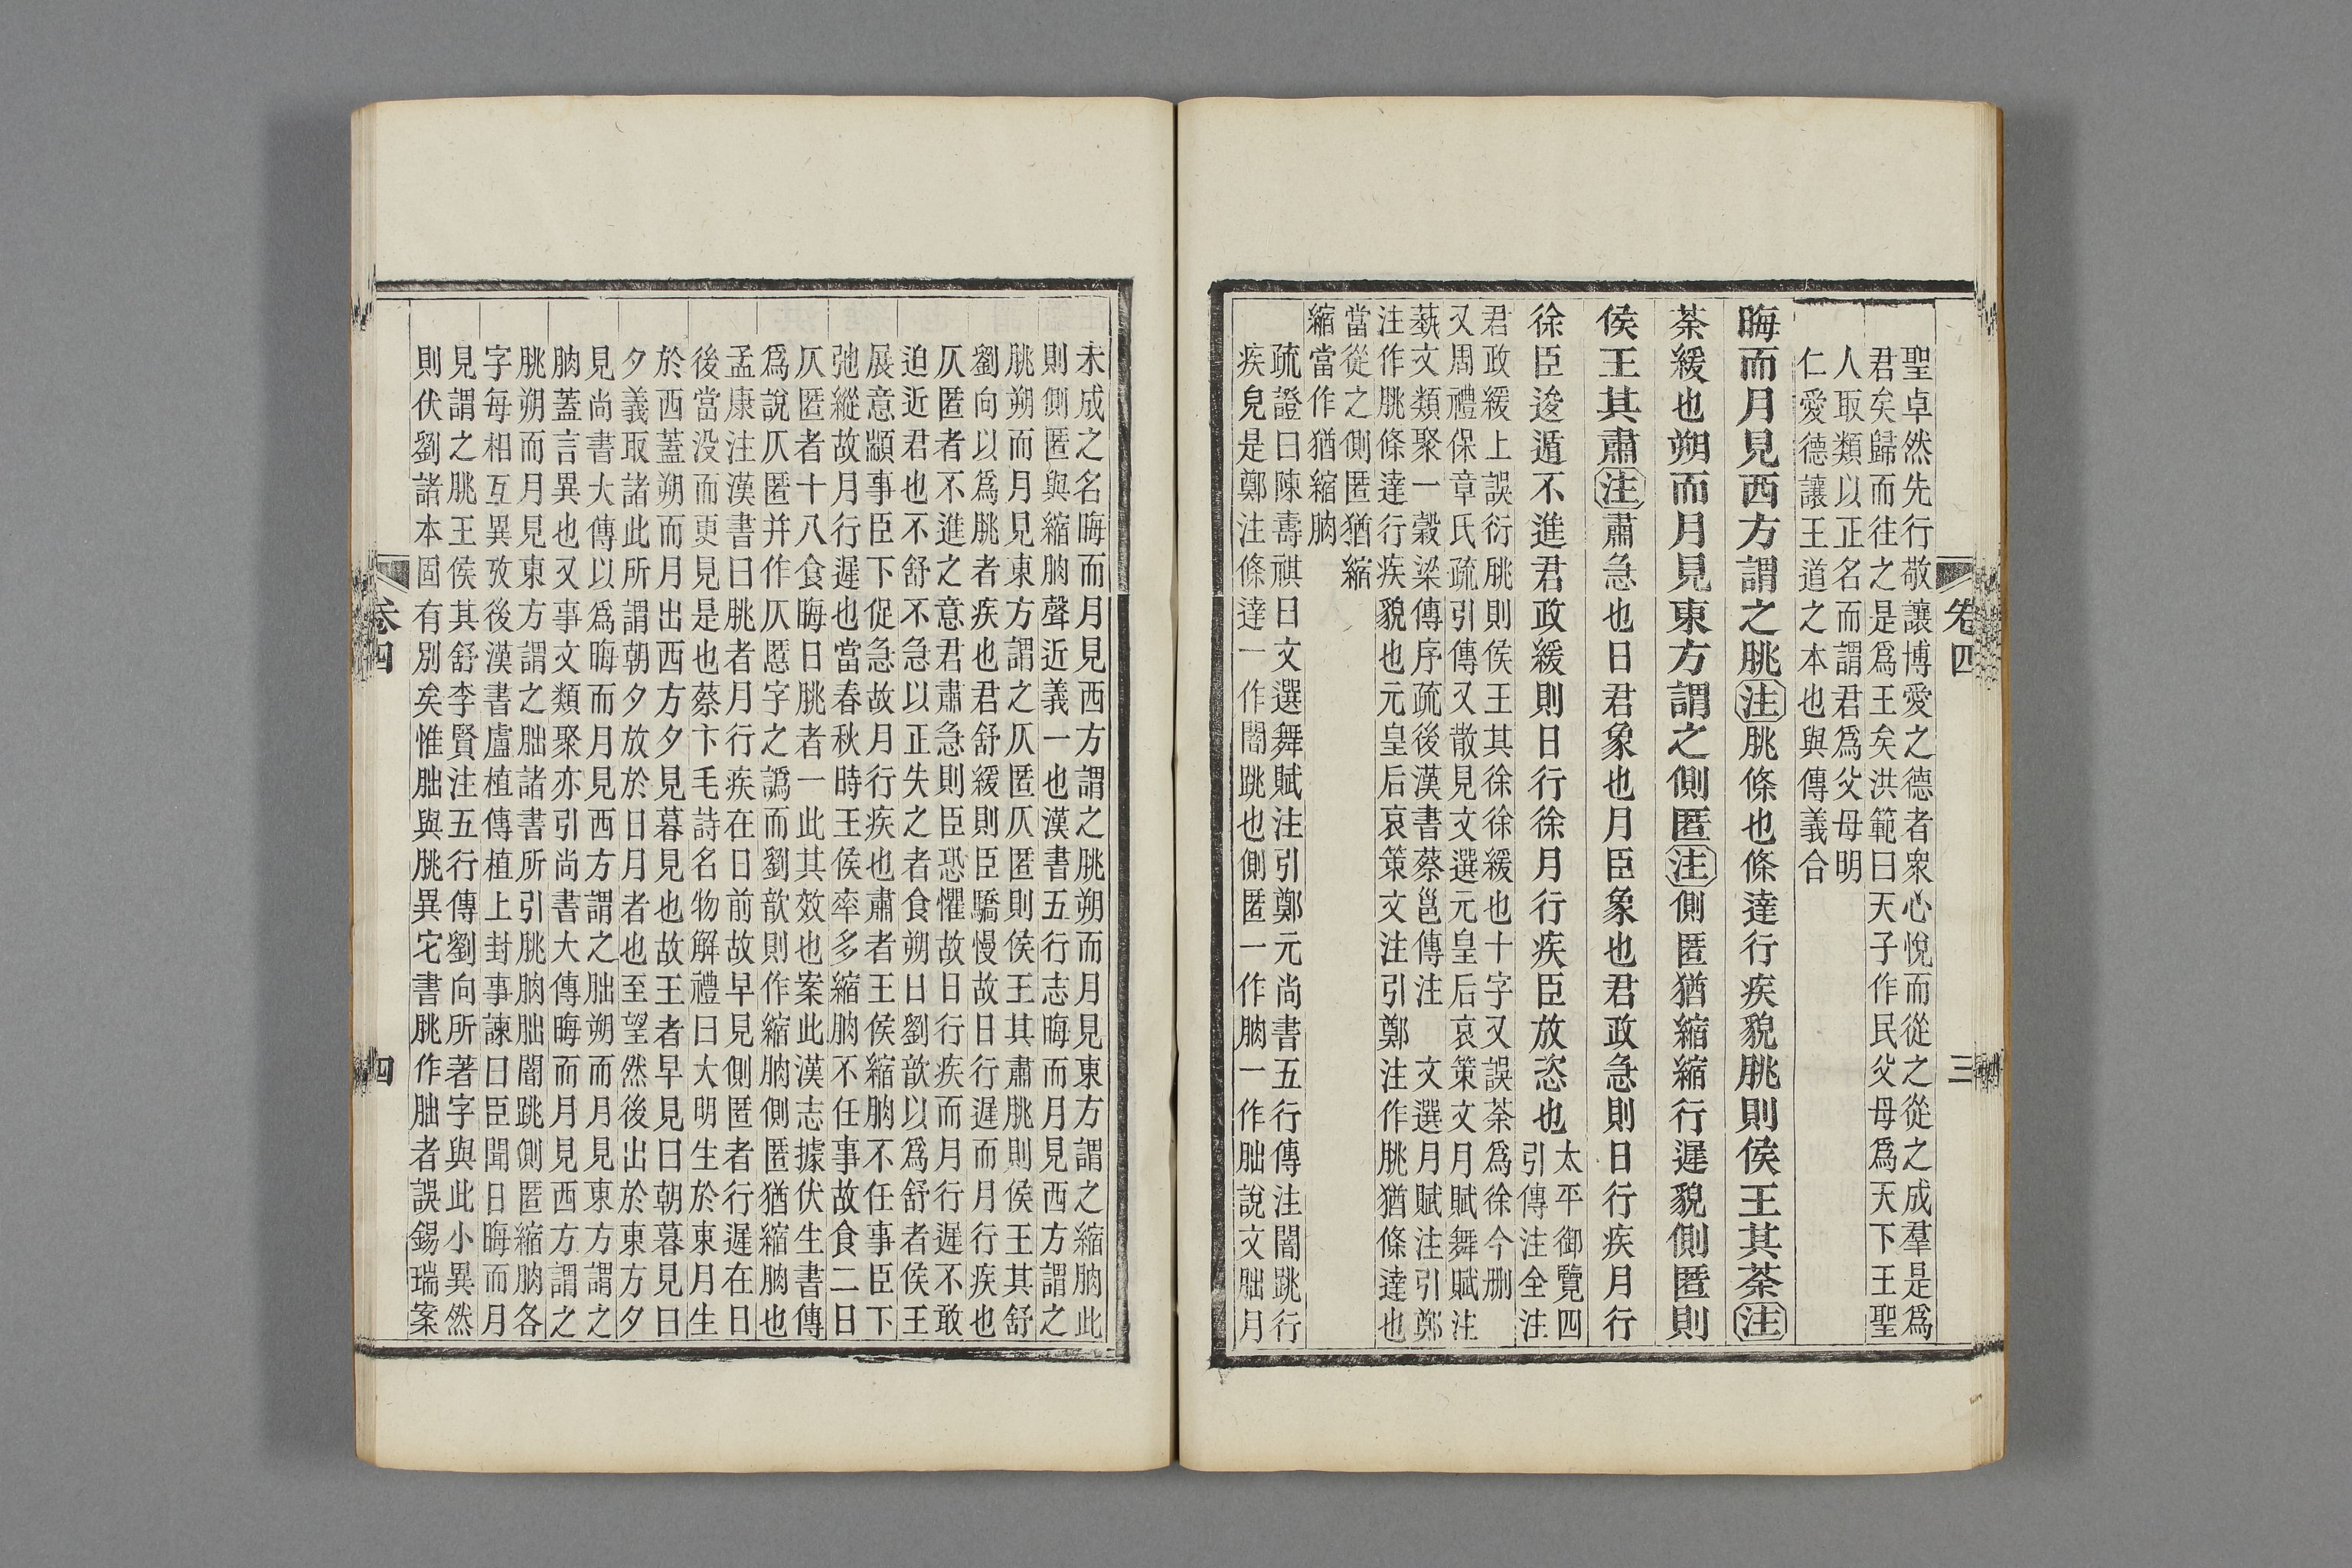 聖卓然先行敬讓博愛之德者衆心悅而從之從之成羣是爲
君矣歸而往之是爲王矣洪範曰天子作民父母爲天下王聖
人取類以正名而謂君爲父母明
仁愛德讓王道之本也與傳義合
晦而月見西方謂之朓注朓條也條達行疾貌朓則侯王其荼注
荼緩也朔而月見東方謂之側匿注側匿猶縮縮行遲貌側匿則
侯王其肅注肅急也日君象也月臣象也君政急則日行疾月行
徐臣逡遁不進君政緩則日行徐月行疾臣放恣也太平御覽四
引傳注全注
君政緩上誤衍朓則侯王其徐徐緩也十字又誤荼爲徐今刪
又周禮保章氏疏引傳又散見文選元皇后哀策文月賦舞賦注
蓺文類聚一穀梁傳序疏後漢書蔡邕傳注 文選月賦注引鄭
注作朓條達行疾貌也元皇后哀策文注引鄭注作朓猶條達也
當從之側匿猶縮
縮當作猶縮朒
疏證曰陳壽祺曰文選舞賦注引鄭元尚書五行傳注闇跳行
疾皃是鄭注條達一作闇跳也側匿一作朒一作朏說文朏月
未成之名晦而月見西方謂之朓朔而月見東方謂之縮朒此
則側匿與縮朒聲近義一也漢書五行志晦而月見西方謂之
朓朔而月見東方謂之仄匿仄匿則侯王其肅朓則侯王其舒
劉向以爲朓者疾也君舒緩則臣驕慢故日行遲而月行疾也
仄匿者不進之意君肅急則臣恐懼故日行疾而月行遲不敢
迫近君也不舒不急以正失之者食朔日劉歆以爲舒者侯王
展意顓事臣下促急故月行疾也肅者王侯縮朒不任事臣下
弛縱故月行遲也當春秋時王侯率多縮朒不任事故食二日
仄匿者十八食晦日朓者一此其效也案此漢志據伏生書傳
爲說仄匿并作仄慝字之譌而劉歆則作縮朒側匿猶縮朒也
孟康注漢書曰朓者月行疾在日前故早見側匿者行遲在日
後當没而更見是也蔡卞毛詩名物解禮曰大明生於東月生
於西蓋朔而月出西方夕見暮見也故王者早見曰朝暮見曰
夕義取諸此所謂朝夕夕放於日月者也至望然後出於東方夕
見尚書大傳以爲晦而月見西方謂之朏朔而月見東方謂之
朒蓋言異也又事文類聚亦引尚書大傳晦而月見西方謂之
朓朔而月見東方謂之朏諸書所引朓朒朏闇跳側匿縮朒各
字每相互異攷後漢書盧植傳植上封事諫曰臣聞日晦而月
見謂之朓王侯其舒李賢注五行傳劉向所著字與此小異然
則伏劉諸本固有別矣惟朏與朓異它書朓作朏者誤錫瑞案
卷四
三
卷四
四